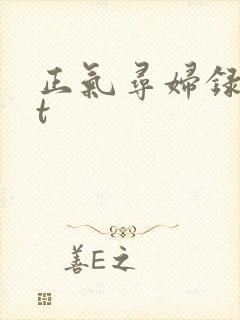 正氣尋婦録
t
善E之